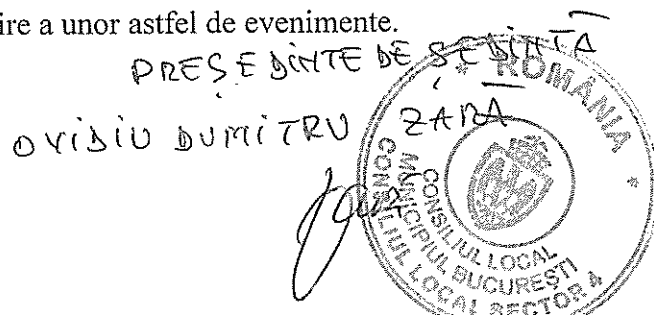 ire a unor astfel de evenimente.
PREȘEDINTE DE ȘEDINȚĂ
OVIDIU DUMITRU ZARĂ
* ROMÂNIA *
CONSILIUL LOCAL
MUNICIPIUL BUCUREȘTI
CONSILIUL LOCAL SECTOR 4